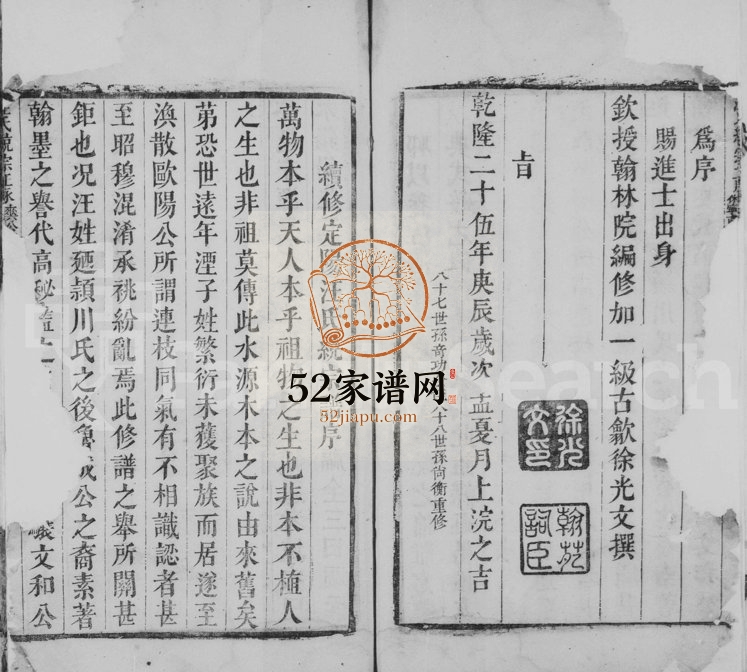 爲序
賜進士出身
欽授翰林院編修加一級古歙徐光文撰
徐光文印
翰苑詞臣
旹
乾隆二十伍年庚辰歲次孟夏月上浣之吉
八十七世孫奇功 八十八世孫尙衡重修
續修定陽汪氏統宗 序
萬物本乎天人本乎祖物之生也非本不植人
之生也非祖莫傳此水源木本之說由來舊矣
苐恐世遠年湮子姓繁衍未獲聚族而居遂至
渙散歐陽公所謂連枝同氣有不相識認者甚
至昭穆混淆承祧紛亂焉此修譜之舉所關甚
鉅也况汪姓廼頴川氏之後魯成公之裔素著
翰墨之譽代高
文和公
52家谱网
52jiapu.com
Search